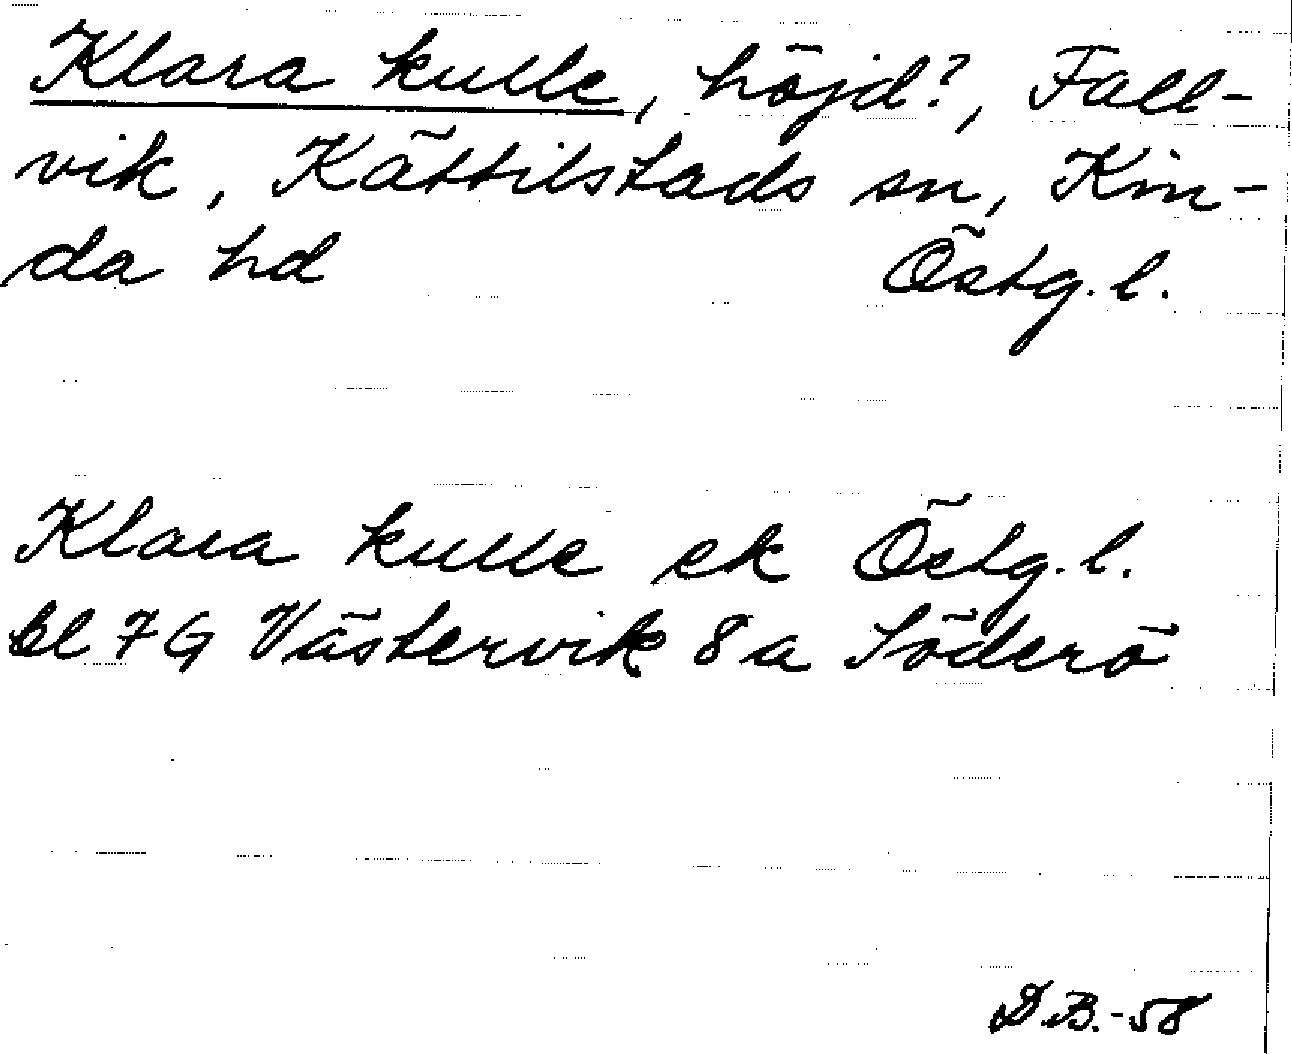 Klara kulle, höjd?, Fall-
vik, Kättilstads sn, Kin-
da hd Östg. l.
Klara kulle ek Östg. l.
bl 7G Västervik 8a Söderö
D.B.-58